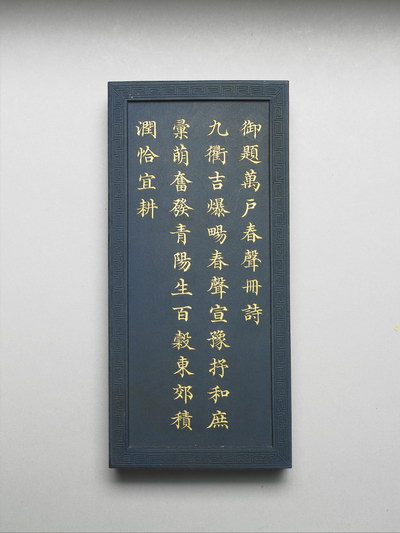 御題萬戶春聲冊詩
九衢吉爆暢春聲宣豫抒和庶
彙萌奮發青陽生百穀東郊積
潤恰宜耕